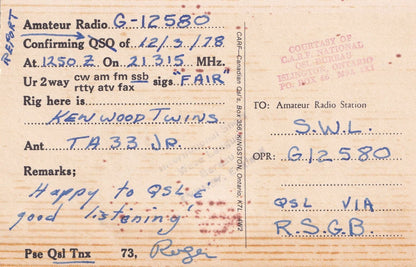 REPORT
Amateur Radio G-12580
Confirming QSO of 12/3/78
At 1250Z On 21.315 MHz.
Ur 2way cw am fm ssb sigs "FAIR"
rtty atv fax
Rig here is
KENWOOD TWINS
Ant TA33 JR.
Remarks;
Happy to QSL &
good listening"
Pse Qsl Tnx 73, Roger
CARF—Canadian Qsl's, Box 356 KINGSTON, Ontario, K7L 4W2
COURTESY OF
C.A.R.F. NATIONAL
QSL BUREAU
ISLINGTON, ONTARIO
P.O. BOX 66
TO: Amateur Radio Station
S.W.L.
OPR: G12580
QSL VIA
R.S.G.B.